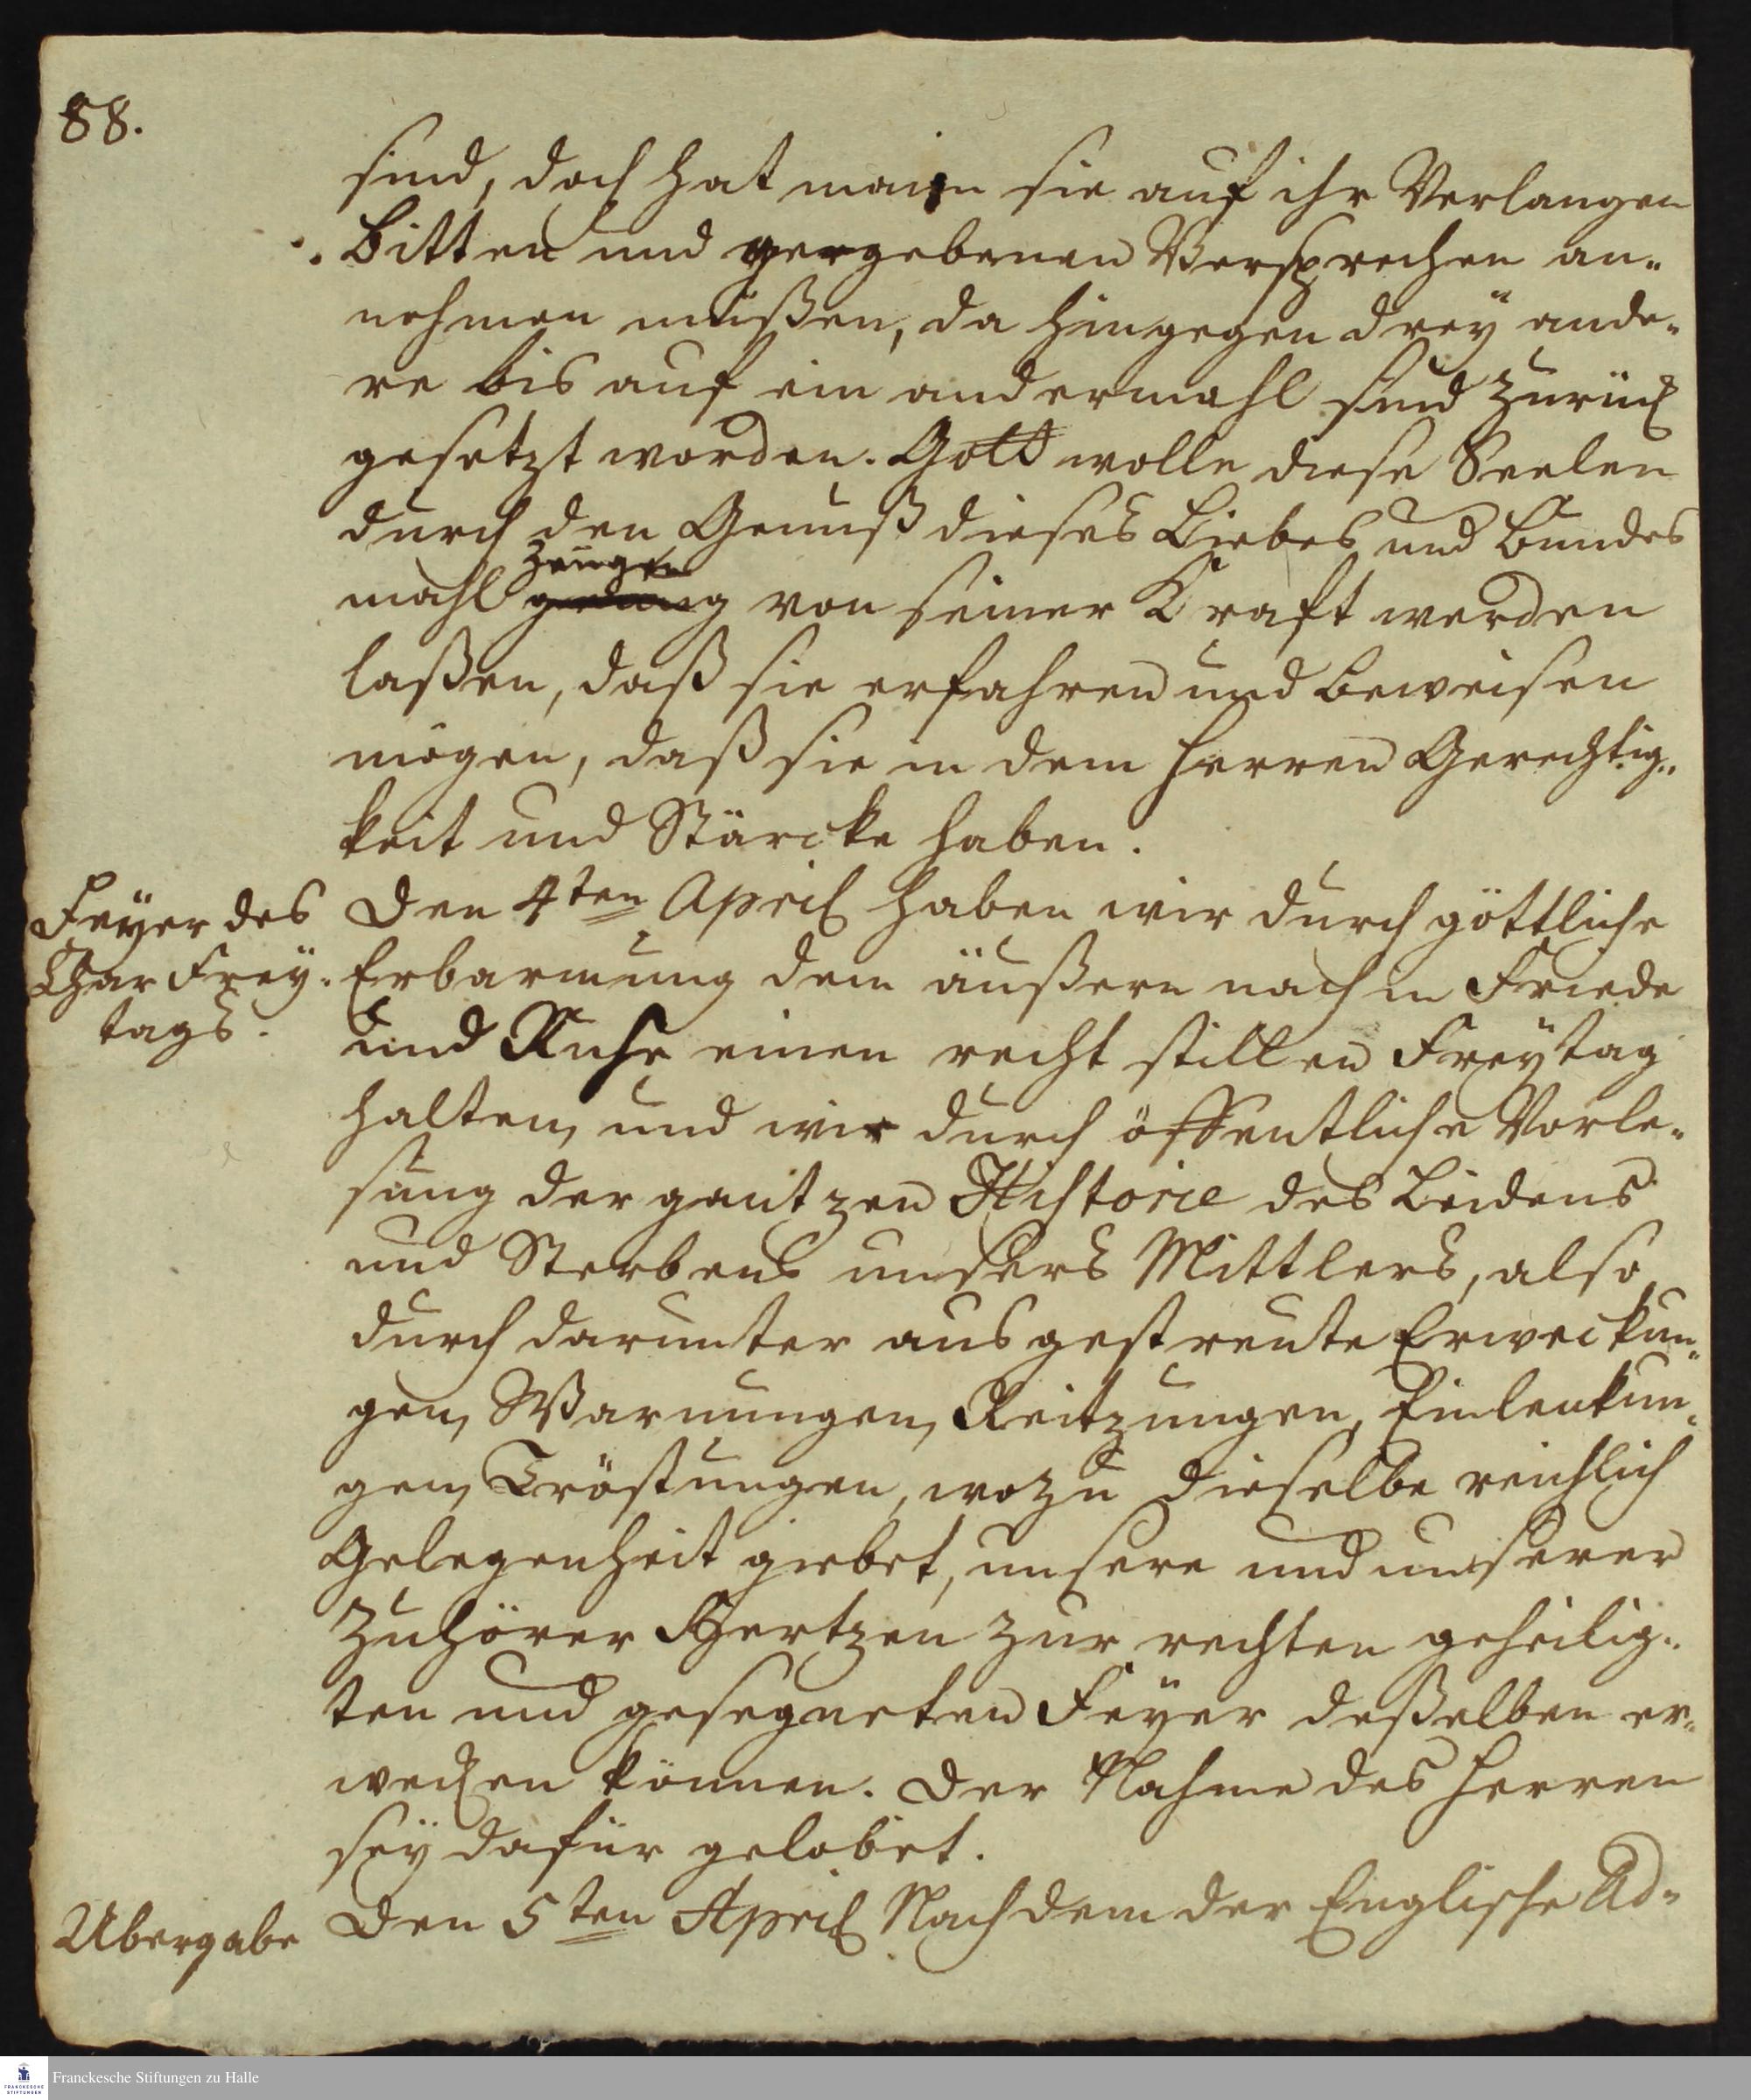 88.
sind, doch hat man sie auf ihr Verlangen
Bitten und gegebenen Versprechen an„
nehmen müßen, da hingegen dreÿ ande„
re bis auf ein andermahl sind zurück
gesetzt worden. Gott wolle diese Seelen
durch den Genuß dieses Liebes und Bundes
zeugen
mahl von seiner Kraft werden
laßen, daß sie erfahren und beweisen
mögen, daß sie in dem Herren Gerechtig„
keit und Stärcke haben.
Feÿer des
Char Freÿ„
tags.
Den 4ten April haben wir durch göttliche
Erbarmung dem äußern nach in Friede
und Ruhe einen recht stillen Freÿtag
halten, und wir durch öffentliche Vorle„
sung der gantzen Historie des Leidens
und Sterbens unsers Mittlers, also
durch darunter ausgestreute Erweckun„
gen, Warnungen, Reitzungen, Einlenkun„
gen, Tröstungen, wozu dieselbe reichlich
Gelegenheit giebet, unsere und unserer
Zuhörer Hertzen zur rechten geheilig„
ten und gesegneten Feÿer deßelben er„
wecken können. Der Nahme des Herren
seÿ dafür gelobet.
Ubergabe
Den 5ten April Nachdem der Englische Ad„
Franckesche Stiftungen zu Halle
FRANCKESCHE
STIFTUNGEN